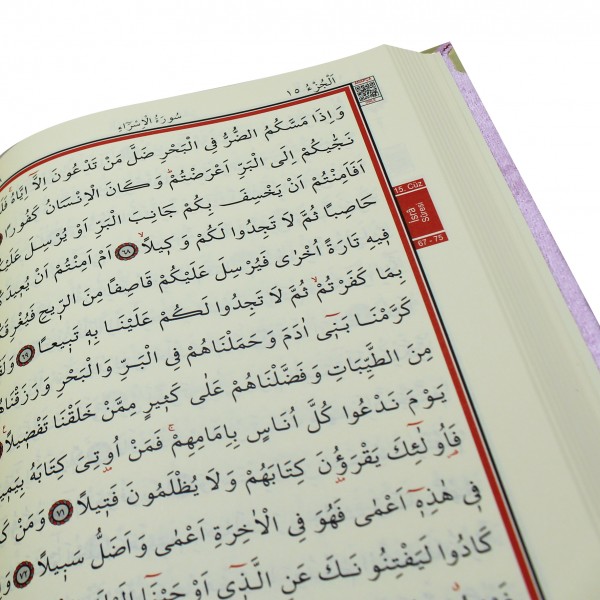 سُورَةُ الْاِسْرَاءِ
اَلْجُزْءُ ١٥
وَاِذَا مَسَّكُمُ الضُّرُّ فِي الْبَحْرِ ضَلَّ مَنْ تَدْعُونَ اِلَّٓا اِيَّاهُۚ
نَجّٰيكُمْ اِلَى الْبَرِّ اَعْرَضْتُمْۜ وَكَانَ الْاِنْسَانُ كَفُورًا
اَفَاَمِنْتُمْ اَنْ يَخْسِفَ بِكُمْ جَانِبَ الْبَرِّ اَوْ يُرْسِلَ
حَاصِبًا ثُمَّ لَا تَجِدُوا لَكُمْ وَكِيلًاۙ ٦٨ اَمْ اَمِنْتُمْ اَنْ
فِيهِ تَارَةً اُخْرٰى فَيُرْسِلَ عَلَيْكُمْ قَاصِفًا مِنَ الرِّيحِ
بِمَا كَفَرْتُمْۙ ثُمَّ لَا تَجِدُوا لَكُمْ عَلَيْنَا بِهِ تَبِيعًا ٦٩
كَرَّمْنَا بَنِيٓ اٰدَمَ وَحَمَلْنَاهُمْ فِي الْبَرِّ وَالْبَحْرِ
مِنَ الطَّيِّبَاتِ وَفَضَّلْنَاهُمْ عَلٰى كَثِيرٍ مِمَّنْ خَلَقْنَا تَفْضِيلًا
يَوْمَ نَدْعُوا كُلَّ اُنَاسٍ بِاِمَامِهِمْۚ فَمَنْ اُوتِيَ كِتَابَهُ
فَاُو۬لٰٓئِكَ يَقْرَؤُ۫نَ كِتَابَهُمْ وَلَا يُظْلَمُونَ فَتِيلًا ٧١ وَمَنْ
فِي هٰذِهِٓ اَعْمٰى فَهُوَ فِي الْاٰخِرَةِ اَعْمٰى وَاَضَلُّ سَبِيلًا ٧٢
كَادُوا لَيَفْتِنُونَكَ عَنِ الَّذِيٓ اَوْحَيْنَٓا
15. Cüz
İsrâ
Sûresi
67 - 75